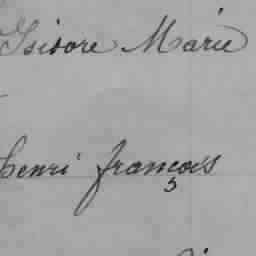 Isidore Marie
henri françois